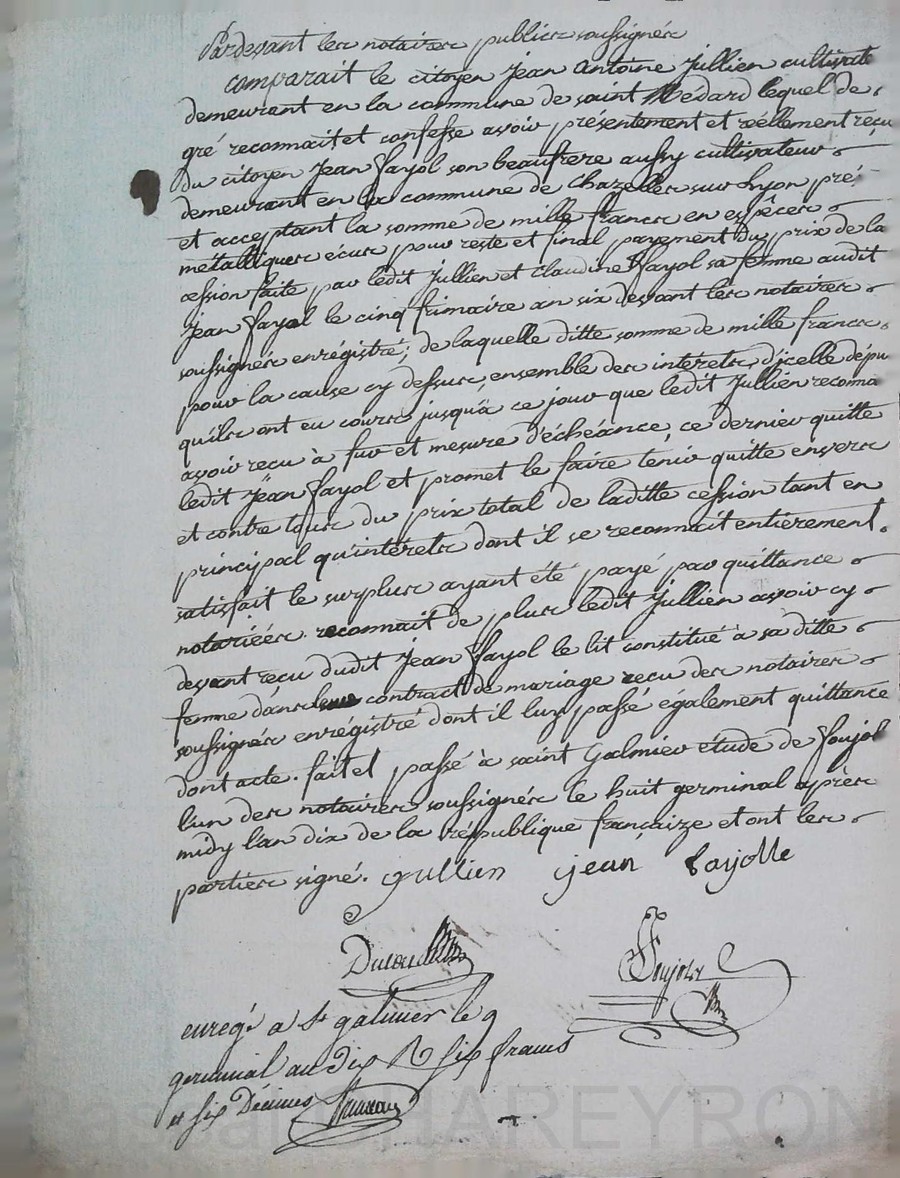 Pardevant les notaires publics soussignés
comparait le citoyen Jean Antoine Jullien cultivate
demeurant en la commune de saint Medard lequel de
gré reconnait et confesse avoir presentement et réellement reçu
du citoyen Jean Fayol son beaufrere aussy cultivateur
demeurant en la commune de Chazelles sur Lyon pre
et acceptant la somme de mille francs en espêces
métalliques écus pour reste et final payement du prix de la
cession faite par ledit Jullien et Claudine Fayol sa femme audit
Jean Fayol le cinq frimaire an six devant les notaires
soussignés enrégistré; de laquelle ditte somme de mille francs
pour la cause cy dessus, ensemble des intérets d'icelle dépu
qu'ils ont eu cours jusqu'à ce jour que ledit Jullien reconna
avoir reçu à fur et mesure d'échéance, ce dernier quitte
ledit Jean Fayol et promet le faire tenir quitte envers
et contre tous du prix total de laditte cession tant en
principal qu'intérets dont il se reconnait entièrement
satisfait le surplus ayant été payé par quittance
notariées. reconnait de plus ledit Jullien avoir cy
devant reçu dudit Jean Fayol le lit constitué à sa ditte
femme dans contract de mariage reçu des notaires
soussignés enrégistré dont il luy passé également quittance
dont acte. fait et passé à saint Galmier étude de Foujol
l'un des notaires soussignés le huit germinal après
midy l'an dix de la république françaize et ont les
parties signé. Jullien jean fayolle
Foujols
enregé a St galmier le 9
germinal an dix R six francs
et six Décimes
HAREYRON